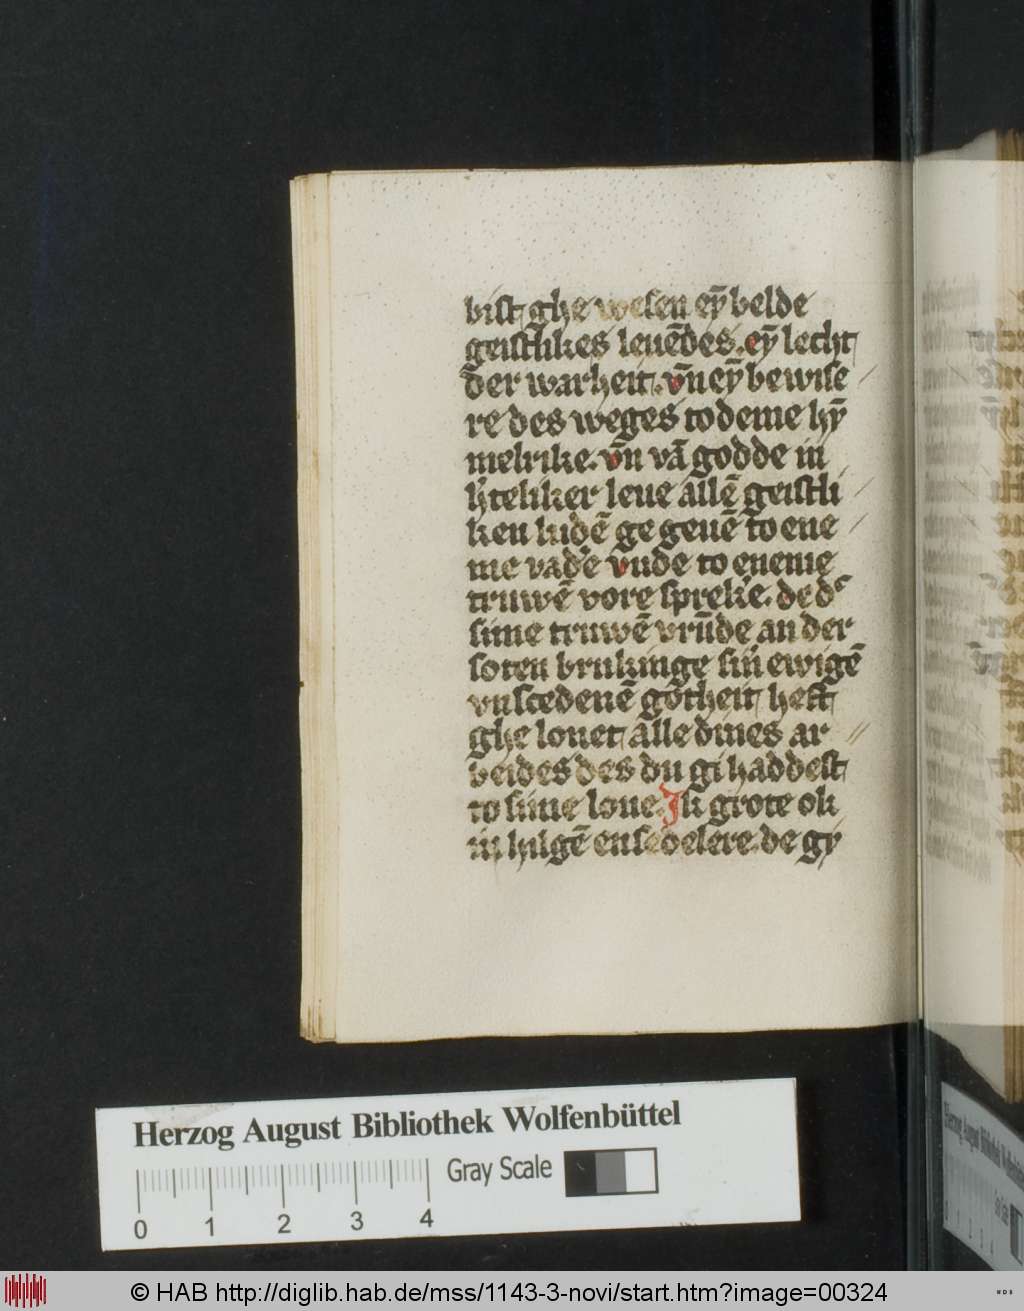 bist ghe wesen eȳ belde
geistlikes leuēdes. eȳ lecht
der warheit. vn̄ eȳ bewise /
re des weges to deme hȳ
melrike. vn̄ vā godde in
liteliker leue allē geistli /
ken ludē ge geuē to ene /
me vad'e vnde to eneme
truwē vore sprek'e. de d'
sime truwē vrūde an der
soten brukinge sin ewigē
vnscedenē gotheit heft
ghe louet alle dines ar //
beides des du gi haddest
to sime loue. Ik grote ok
in hilgē de gy
Herzog August Bibliothek Wolfenbüttel
Gray Scale
0 1 2 3 4
© HAB http://diglib.hab.de/mss/1143-3-novi/start.htm?image=00324